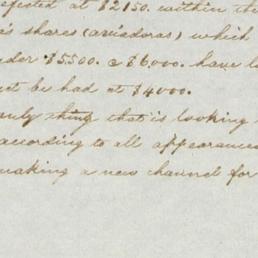 at $2150. within the
shares (aviadoras) which
$5500. @ $6,000. have
be had at $4000.
thing that is looking
according to all appearances
making a new channel for